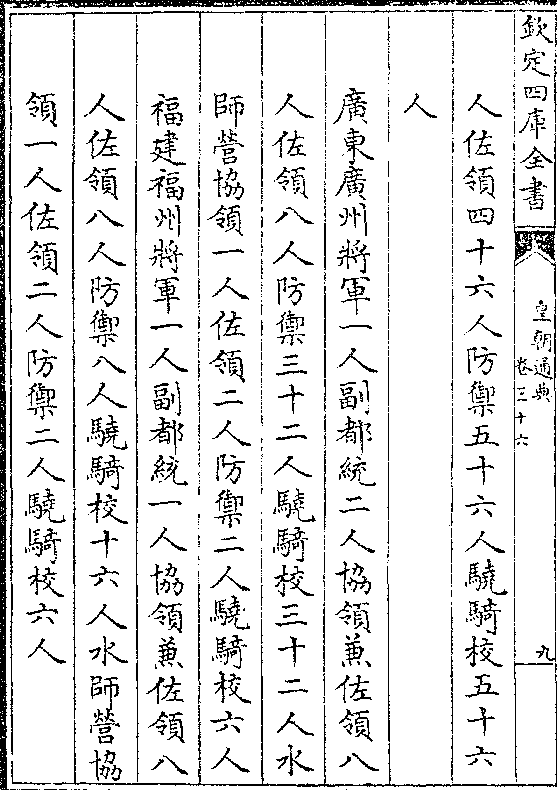 欽定四庫全書
皇朝通典
卷三十六
九
人佐領四十六人防禦五十六人驍騎校五十六
人
廣東廣州將軍一人副都統二人協領兼佐領八
人佐領八人防禦三十二人驍騎校三十二人水
師營協領一人佐領二人防禦二人驍騎校六人
福建福州將軍一人副都統一人協領兼佐領八
人佐領八人防禦八人驍騎校十六人水師營協
領一人佐領二人防禦二人驍騎校六人